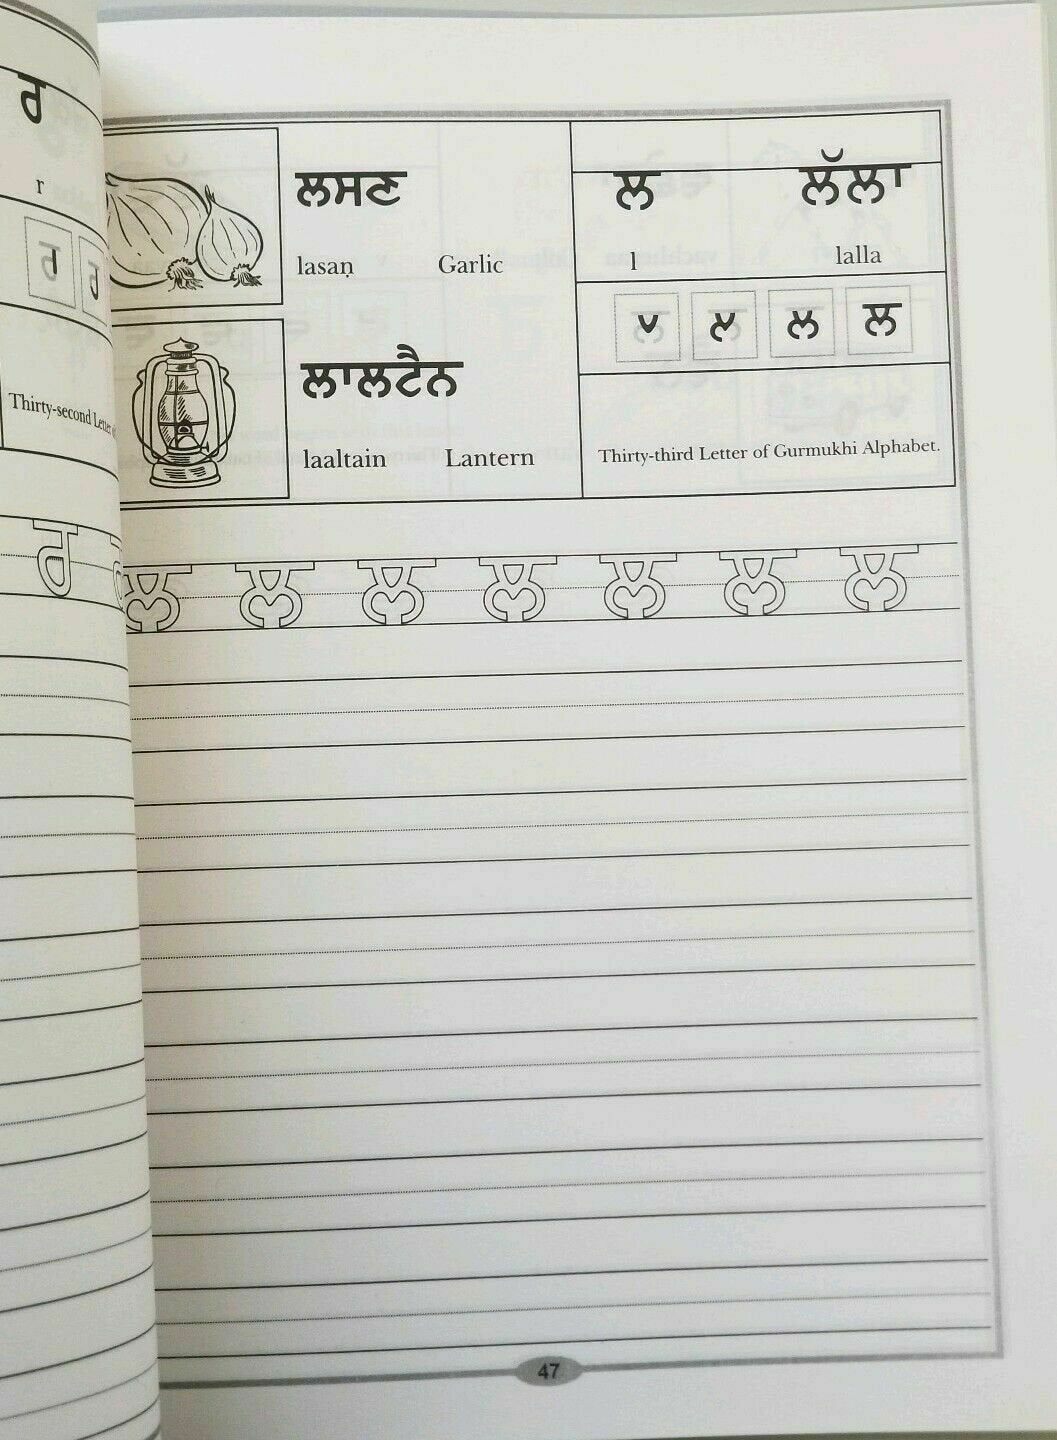 ਰ
r
ਰ ਰ
Thirty-second Letter
ਰ
ਲਸਣ
lasaṇ Garlic
ਲਾਲਟੈਨ
laaltain Lantern
ਲ ਲੱਲਾ
l lalla
ਲ ਲ
Thirty-third Letter of Gurmukhi Alphabet.
ਲ ਲ ਲ ਲ ਲ ਲ ਲ
47